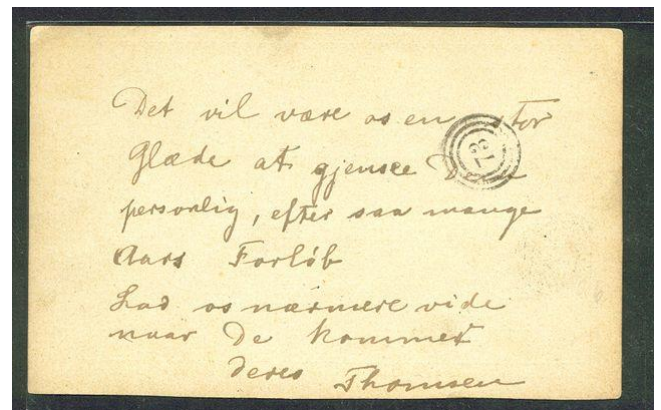 Det vil være os en stor
Glæde at gjensee
personlig, efter saa mange
Aars Forløb
Lad os nærmere vide
naar De kommer
Deres Thomsen